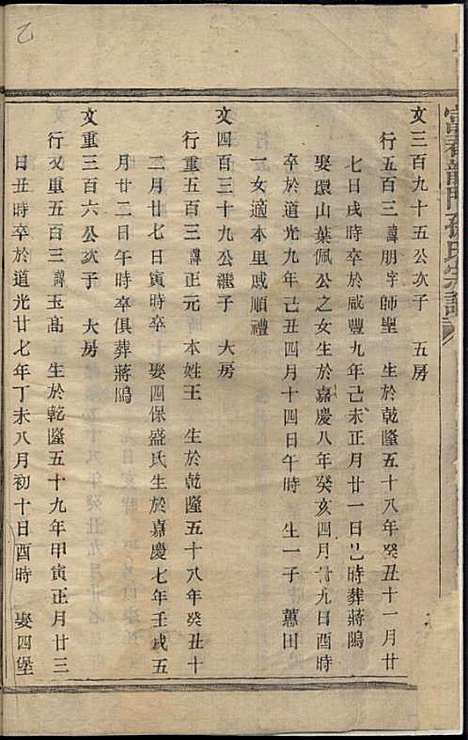 富春龍門孫氏宗譜
文三百九十五公次子　五房
行五百三諱朋字師聖　生於乾隆五十八年癸丑十一月廿
七日戌時卒於咸豐九年己未正月廿一日巳時葬蔣隖
娶環山葉佩公之女生於嘉慶八年癸亥四月廿九日酉時
卒於道光九年己丑四月十四日午時　生一子　蕙田
一女適本里戚順禮
文四百三十九公繼子　大房
行重五百三諱正元　本姓王　生於乾隆五十八年癸丑十
二月廿七日寅時卒　娶四保盛氏生於嘉慶七年壬戌五
月廿二日午時卒俱葬蔣隖
文重三百六公次子　大房
行文重五百三諱玉高　生於乾隆五十九年甲寅正月廿三
日丑時卒於道光廿七年丁未八月初十日酉時　娶四堡
乙